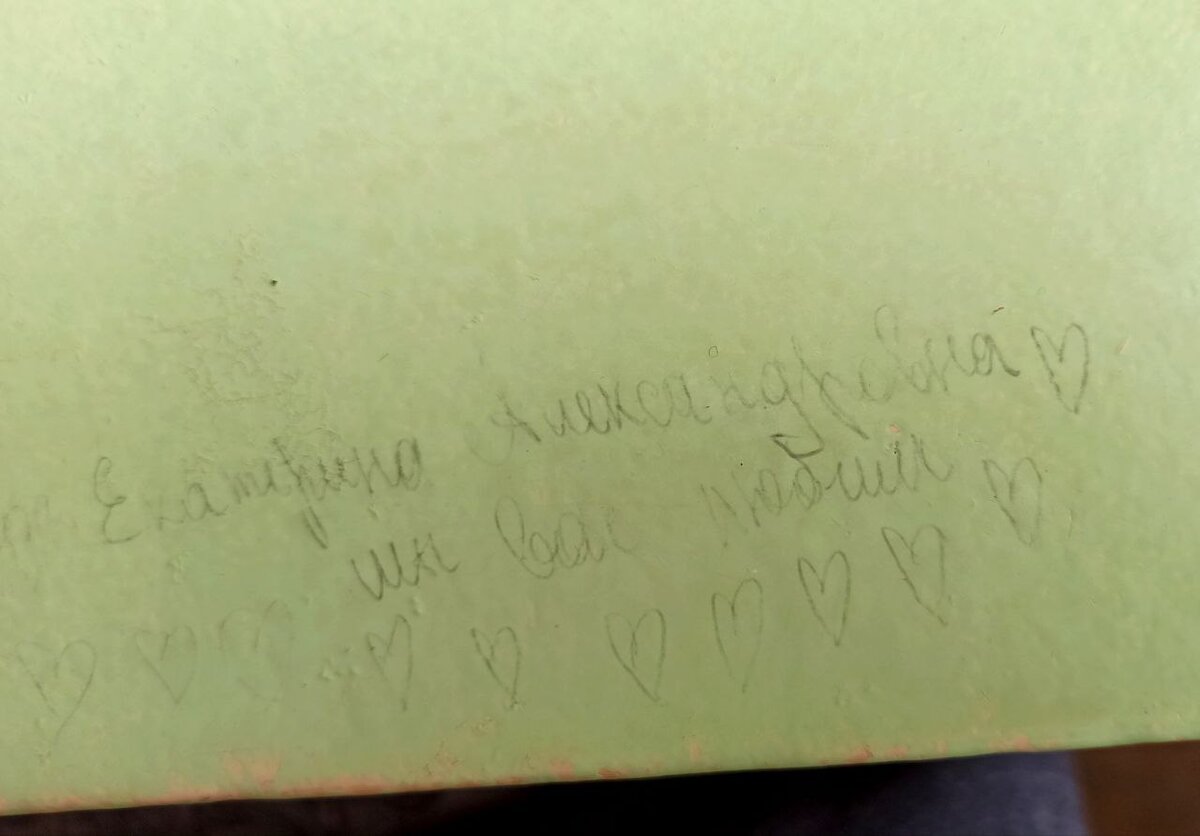 Екатерина Александровна ♡
мы вас любим
♡ ♡ ♡ ♡ ♡ ♡ ♡ ♡ ♡ ♡